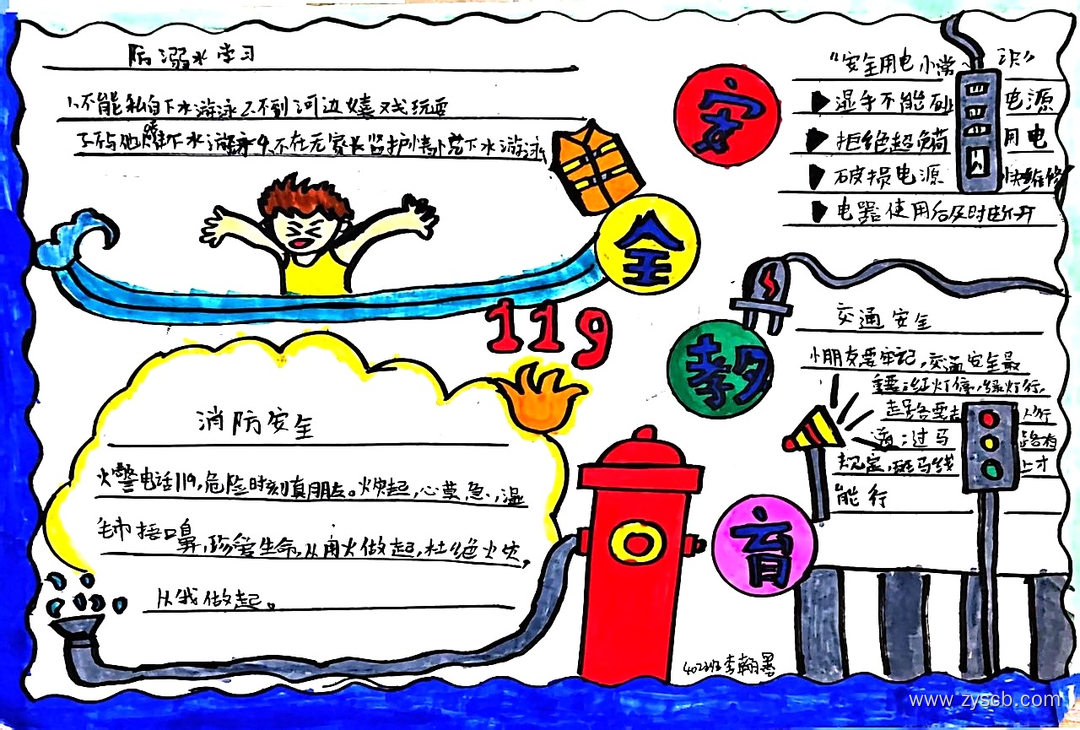 防溺水学习
1、不能私自下水游泳 2、不到河边嬉戏玩耍
下水游泳 4、不在无家长监护情况下水游泳
安
全
教
育
119
"安全用电小常识"
湿手不能 电源
拒绝超负荷用电
破损电源快维修
电器使用后及时断开
交通安全
小朋友要牢记,交通安全最
重要:红灯停,绿灯行,
走路要走人行
道;过马路有
规定,斑马线上才
能行
消防安全
火警电话119,危险时刻真朋友。火燃起,心莫急,湿
毛巾捂口鼻,珍爱生命,从用火做起,杜绝火灾,
从我做起。
402班李翰墨
www.zyscb.com